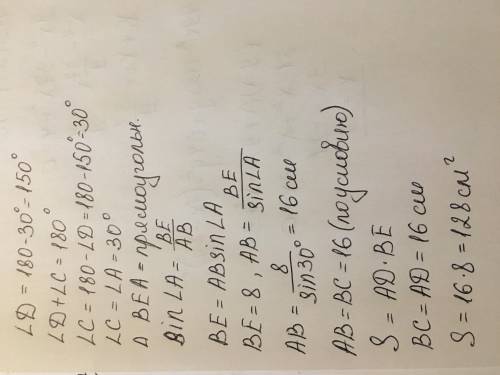 ∠D = 180-30° = 150°
∠D+∠C = 180°
∠C = 180-∠D = 180-150° = 30°
∠C = ∠A = 30°
Δ BEA = прямоугольн.
Sin∠A = BE/AB
BE = AB sin∠A
BE = 8, AB = BE/sin∠A
AB = 8/sin30° = 16 см
AB = BC = 16 (по условию)
S = AD · BE
BC = AD = 16 см
S = 16·8 = 128 см²